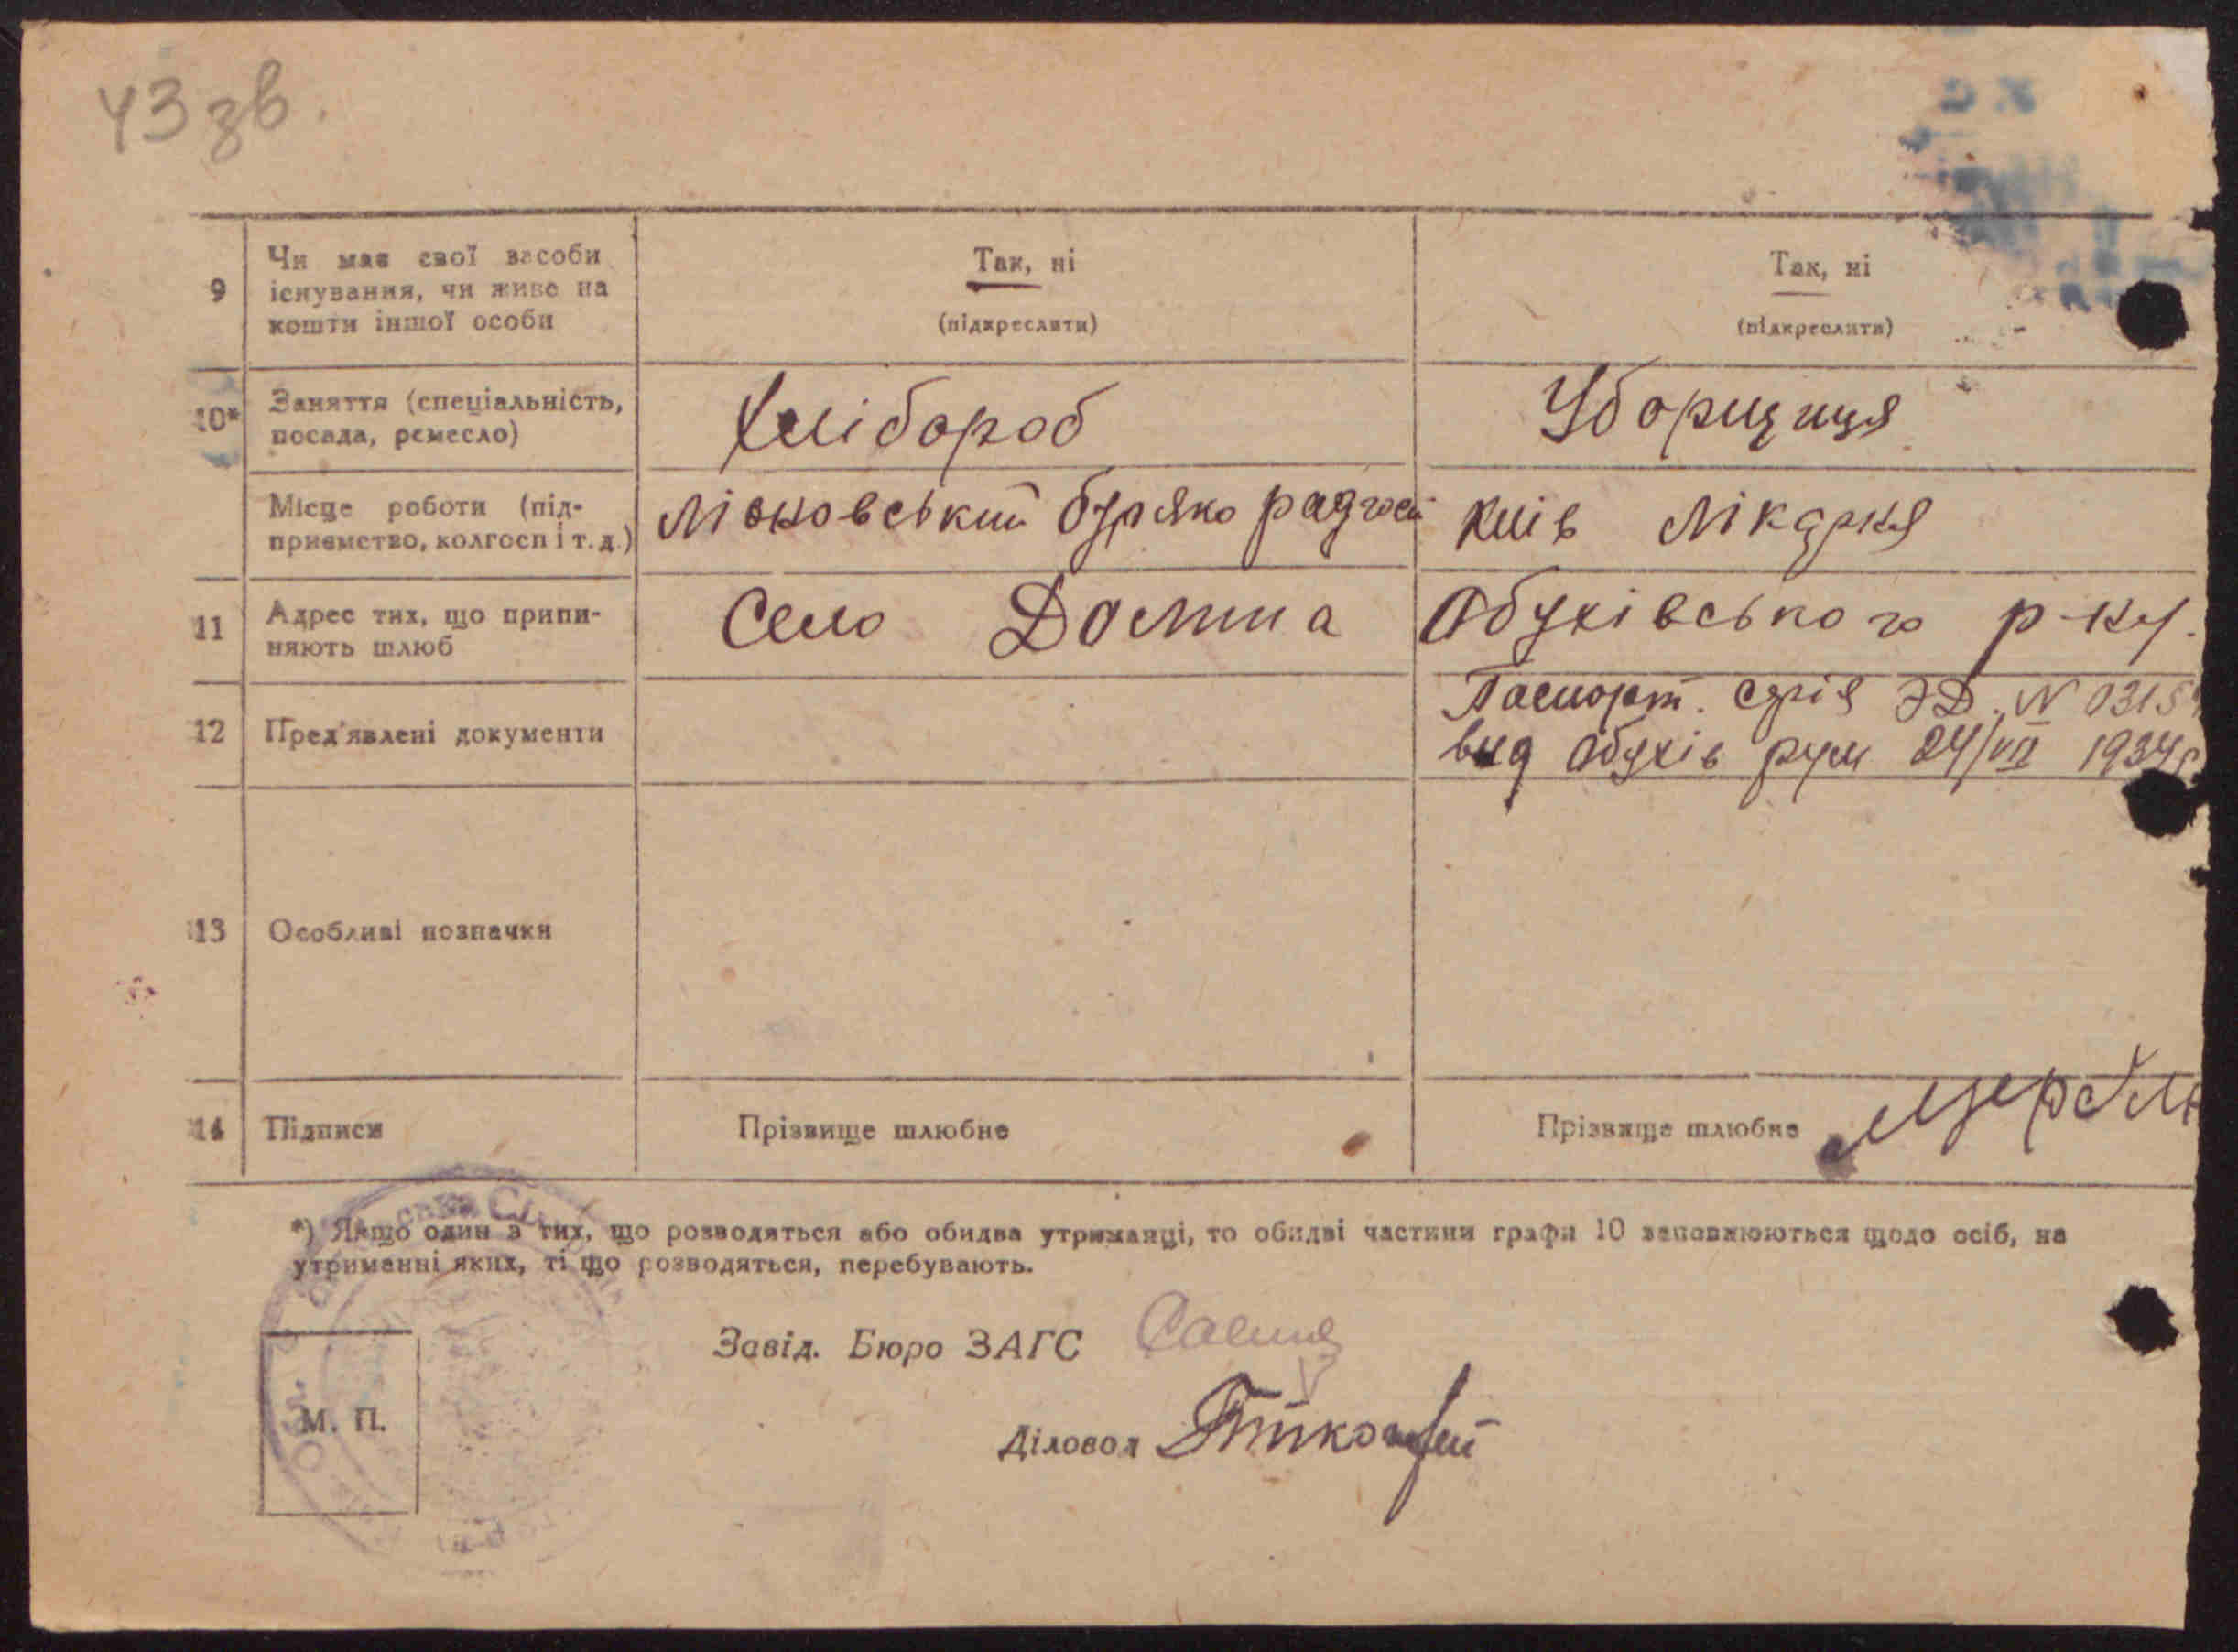 43 зв.
9 Чи має свої засоби існування, чи живе на кошти іншої особи
Так, ні
(підкреслити)
Так, ні
(підкреслити)
10* Заняття (спеціальність, посада, ремесло)
Хлібороб
Уборщиця
Місце роботи (підприємство, колгосп і т. д.)
буряко радгосп
Київ Лікарня
11 Адрес тих, що припиняють шлюб
Село Долина
Обухівського р-ну.
12 Пред'явлені документи
Паспорт. серія ЭД. N 0315
вид Обухів 24/VII 1934р
13 Особливі позначки
14 Підписи
Прізвище шлюбне
Прізвище шлюбне
*) Якщо один з тих, що розводяться або обидва утриманці, то обидві частини графи 10 заповнюються щодо осіб, на
утриманні яких, ті що розводяться, перебувають.
Завід. Бюро ЗАГС
Діловод
М. П.